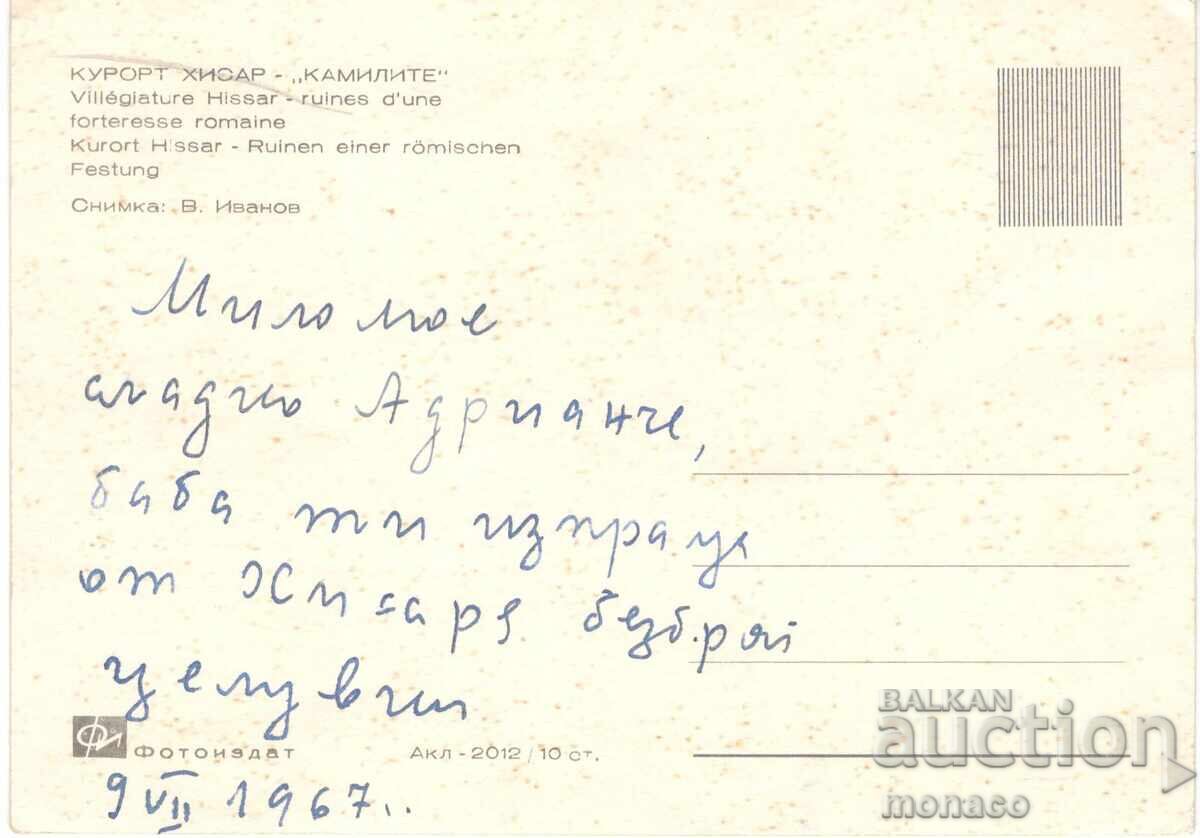 КУРОРТ ХИСАР - „КАМИЛИТЕ"
Villégiature Hissar - ruines d'une
forteresse romaine
Kurort Hissar - Ruinen einer römischen
Festung
Снимка: В. Иванов
Мило мое
сладко Адрианче,
баба ти изпраща
от Хисаря безброй
целувки
ФИ Фотоиздат Акл - 2012 / 10 ст.
9 VII 1967..
BALKAN
auction
monaco